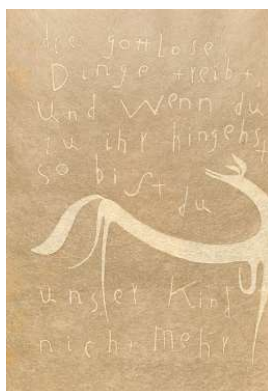 die gottlose
Dinge treibt,
und wenn du
zu ihr hingehst
so bist du
unser Kind
nicht mehr